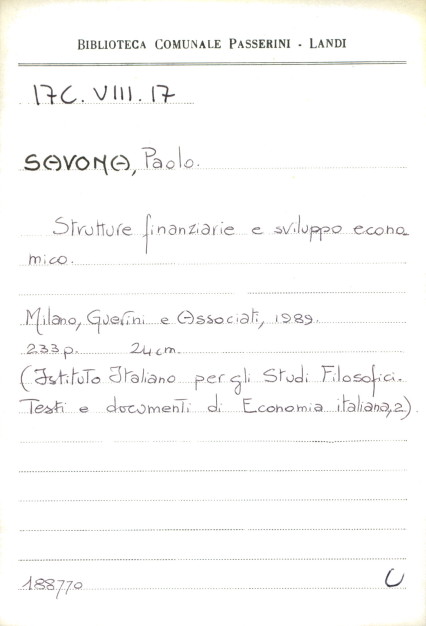 BIBLIOTECA COMUNALE PASSERINI - LANDI
17C. VIII. 17
SAVONA, Paolo.
Strutture finanziarie e sviluppo econo
mico.
Milano, Guerini e Associati, 1989.
233 p. 24 cm.
(Istituto Italiano per gli Studi Filosofici.
Testi e documenti di Economia italiana, 2).
188770 U